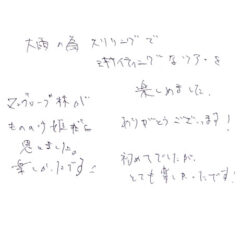 大雨の為 スリリングで
エキサイティングなツアーを
楽しめました。
ありがとうございます!
マングローブ林が
もののけ姫だと
思いました。
楽しかったです!
初めてでしたが、
とても楽しかったです!